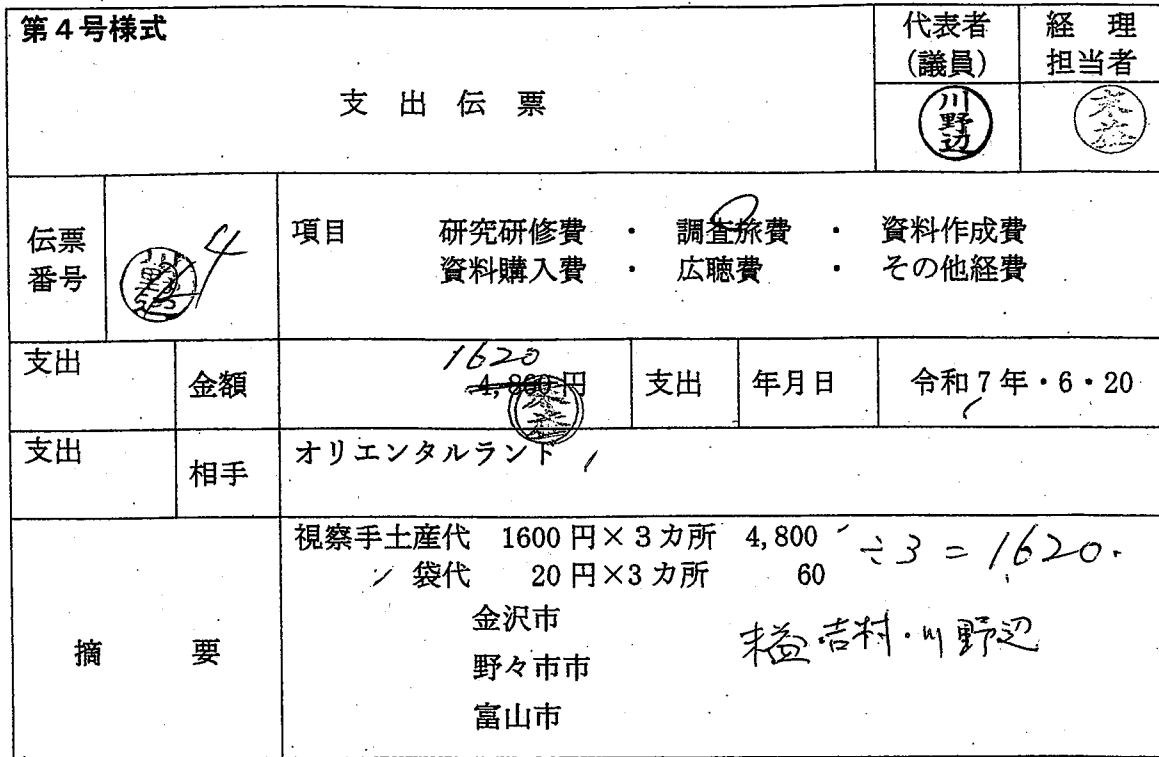 第4号様式
支出伝票
代表者
(議員)
経理
担当者
川野辺
伝票
番号
4
項目 研究研修費 ・ 調査旅費 ・ 資料作成費
資料購入費 ・ 広聴費 ・ その他経費
支出 金額
1620
4,860円
支出 年月日 令和7年・6・20
支出 相手 オリエンタルランド
摘要
視察手土産代 1600円×3カ所 4,800 ÷3=1620.
〃 袋代 20円×3カ所 60
金沢市
野々市市
富山市
吉村・川野辺